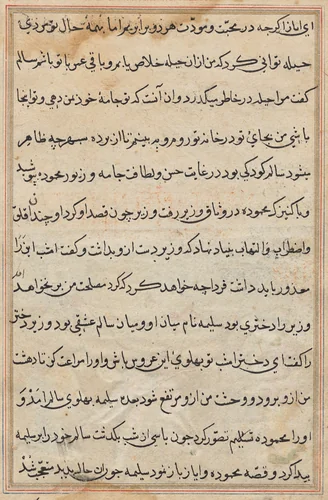 ای امان اگرچه در محبت و مودت هر دو برابریم اما بهمه حال تو مردی
حیله توانی کرد که من از ان حیله خلاص یابم و باقی عمر با تو باشم سالم
کفت مرا حیله در خاطر میگذرد و ان آنست که تو جامه خود من دهی و تو ایجا
باشی من بجای تو در خانه تو روم و به بینم تا از پرده سپهر چه ظاهر
میشود سالم کودکی بود در غایت حسن و لطافت جامه و زیور محموده پوشید
و با کنیزک محموده در وثاق وزیر رفت و وزیر چون قصد او کرد او چندان قلق
واضطراب والتهاب بنیاد نهاد که وزیر دست ازو بداشت و کفت امشب اورا
معذور باید داشت فردا چه خواهد کرد که کرد مصلحت من بر نخواهد
وزیر را دختری بود سلیمه نام میان او و میان سالم عشقی بود وزیر دختر
را کفت ای دختر امشب تو بهلوی این عروس باش و او را مراعت کن تا دهشت
من از و برود و وحشت من از و مرتفع شود بعده سلیمه بهلوی سالم آمد و
او را محموده تصور کرد چون پاسی از شب بکذشت سالم خود را بر سلیمه
پیدا کرد و قصه محموده و ایاز باز نمود سلیمه چون ان حال بدید متعجب شد